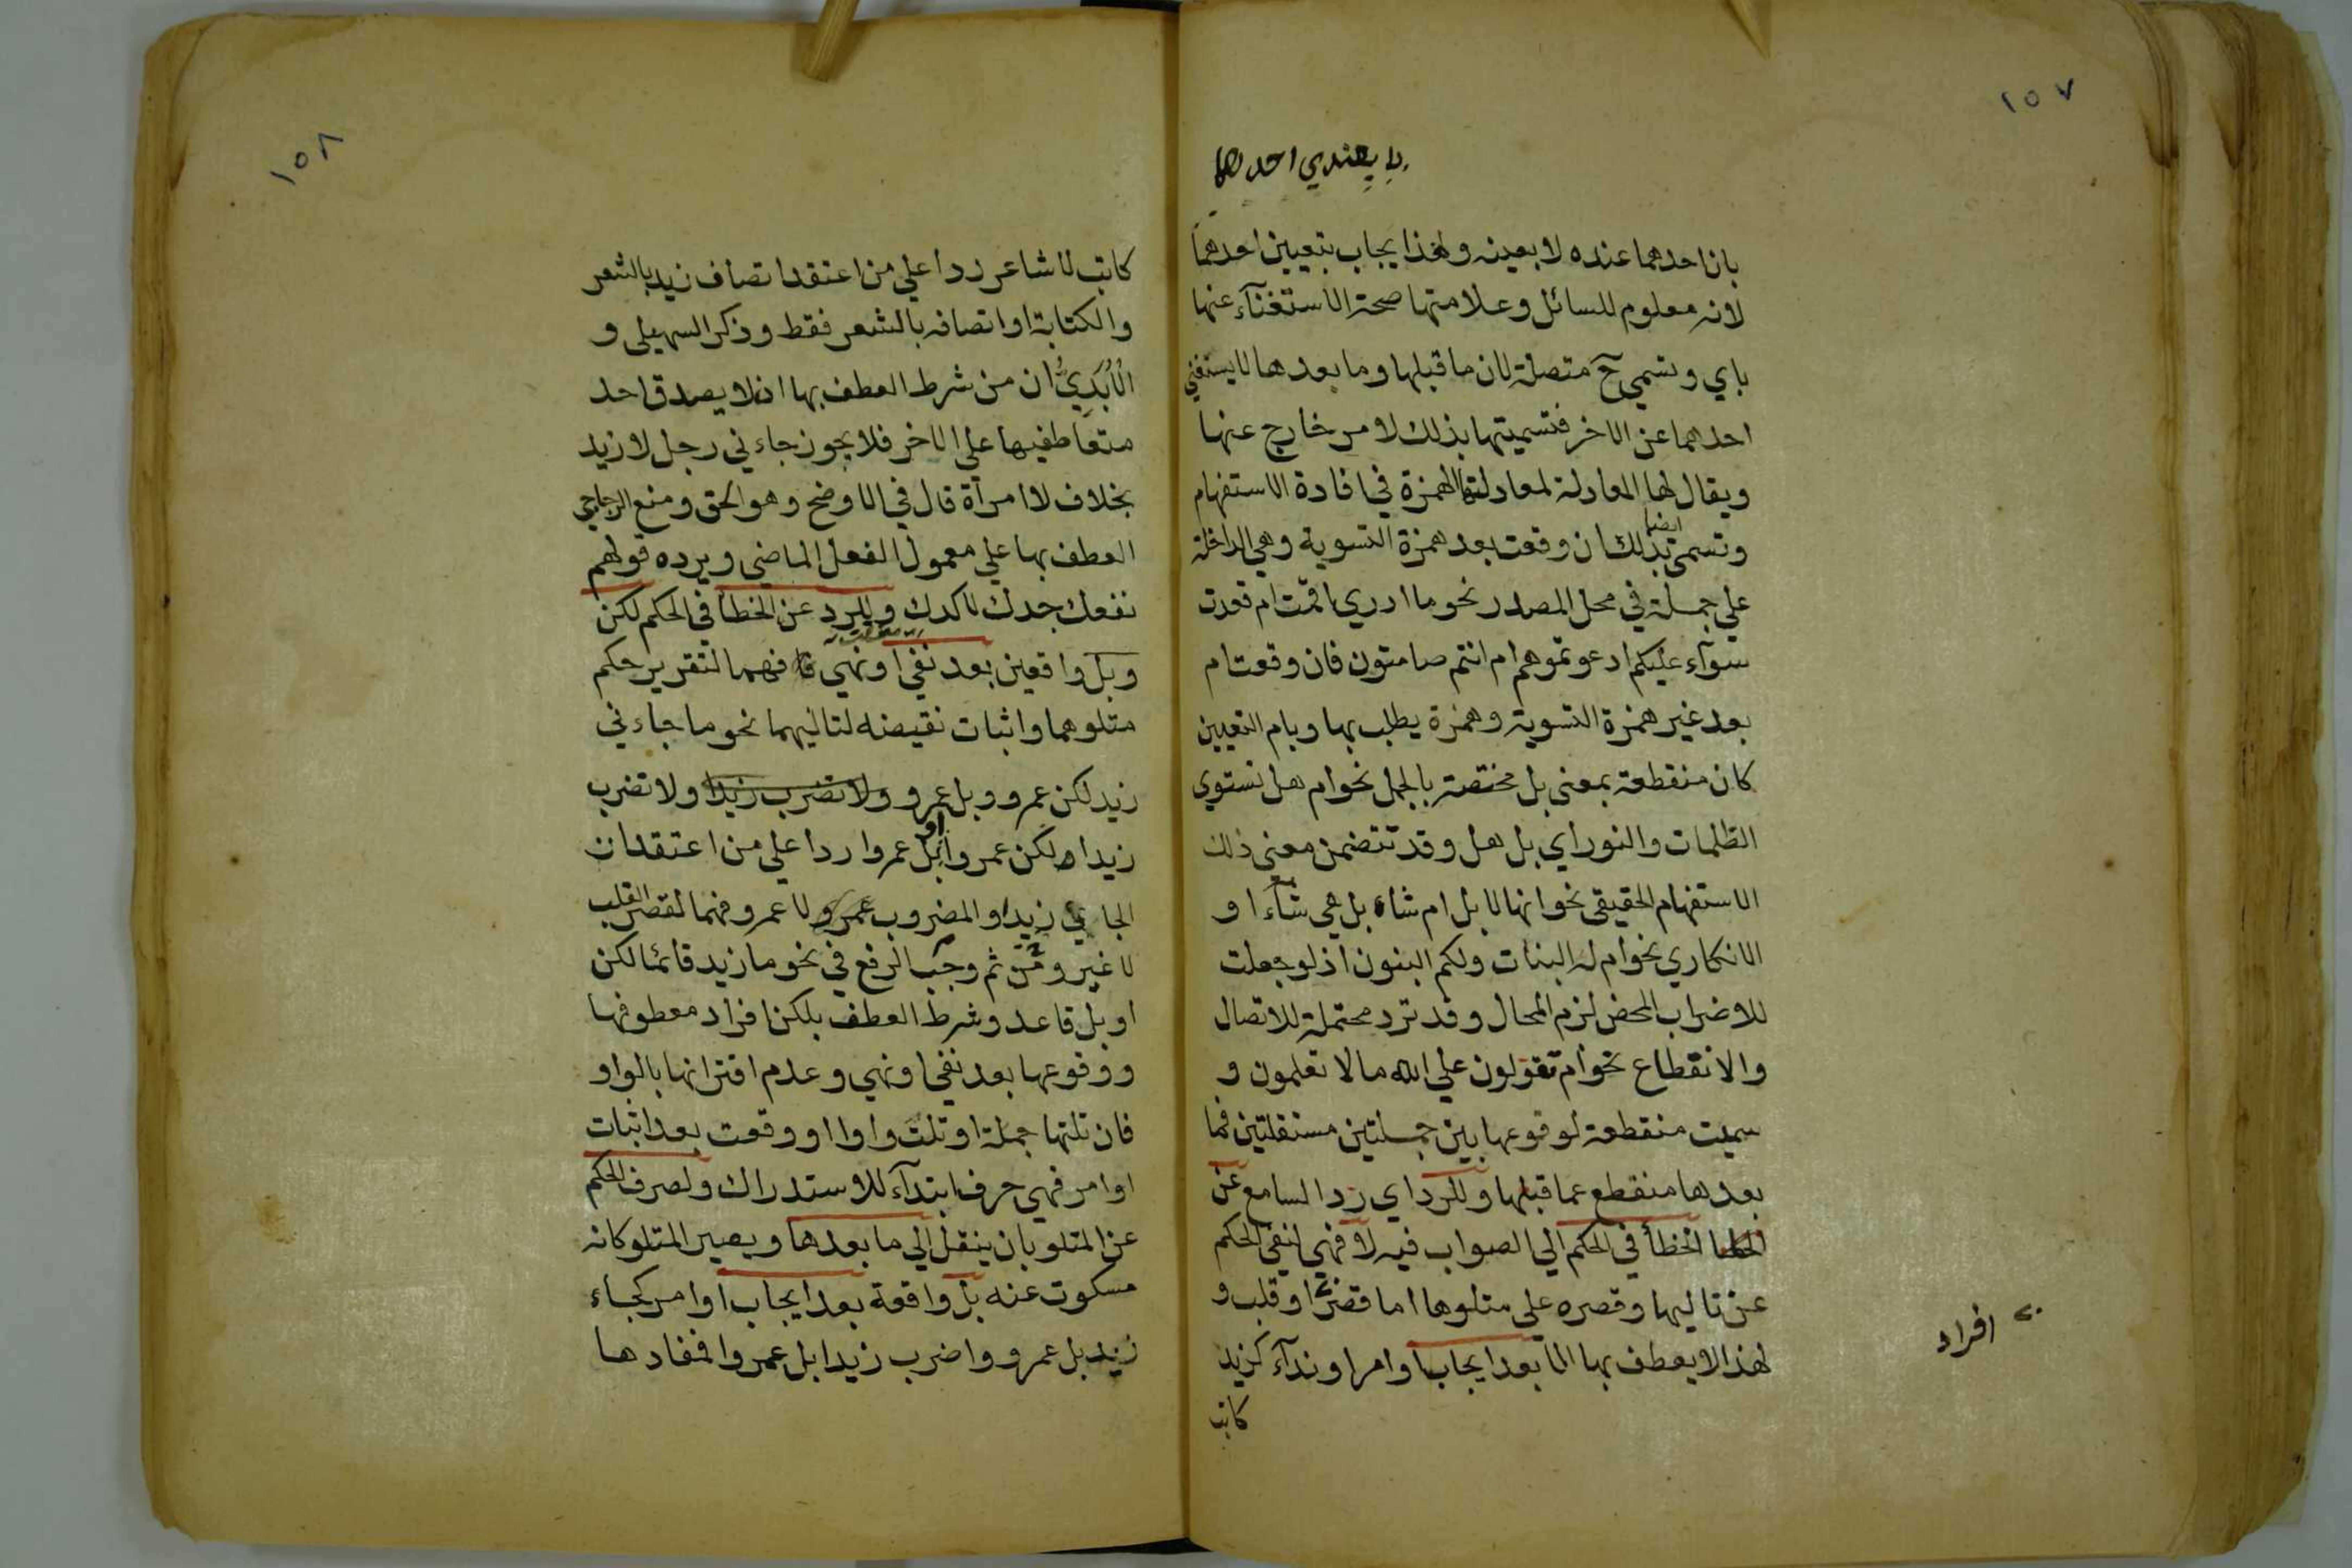 ١٥٧
احدهما
بان احدهما عنده لا بعينه ولهذا يجاب بتعيين احدهما
لانه معلوم للسائل وعلامتها صحة الاستغنآء عنها
باي وتسمى ح متصلة لان ما قبلها وما بعدها لا يستغني
احدهما عن الاخر فتسميتها بذلك لامر خارج عنها
ويقال لها المعادلة لمعادلتها الهمزة في افادة الاستفهام
وتسمى بذلك ايضا ان وقعت بعد همزة التسوية وهي الداخلة
علي جملة في محل المصدر نحو ما ادري اقمت ام قعدت
سوآء عليكم ادعوتموهم ام انتم صامتون فان وقعت ام
بعد غير همزة التسوية وهمزة يطلب بها وبام التعيين
كان منقطعة بمعنى بل مختصة بالجمل نحو ام هل تستوي
الظلمات والنور اي بل هل وقد تتضمن معني ذلك
الاستفهام الحقيقي نحو انها لابل ام شاء بل هي شآء او
الانكاري نحو ام له البنات ولكم البنون اذ لو جعلت
للاضراب المحض لزم المحال وقد ترد محتملة للاتصال
والانقطاع نحو ام تقولون علي الله ما لا تعلمون و
سميت منقطعة لوقوعها بين جملتين مستقلتين فما
بعدها منقطع عما قبلها وللرد اي رد السامع عن
الخطا الخطأ في الحكم الي الصواب فيه لا فهي لنفي الحكم
عن تاليها وقصره على متلوها اما قصر او قلب و
افراد
لهذا لا يعطف بها الا بعد ايجاب او امر او ندآء كزيد
كاتب
١٥٨
كاتب لا شاعر ردا علي من اعتقد اتصاف زيد بالشعر
والكتابة او اتصافه بالشعر فقط وذكر السهيلى و
الأُبَّدِيُّ ان من شرط العطف بها ان لا يصدق احد
متعاطفيها علي الاخر فلا يجوز جاءني رجل لا زيد
بخلاف لا امرآة قال في الاوضح وهو الحق ومنع الزجاجي
العطف بها علي معمول الفعل الماضي ويرده قولهم
نفعك جدك لا كدك وللرد عن الخطا في الحكم لكن
وبل واقعين بعد نفي او نهي فهما لتقرير حكم
متلوهما واثبات نقيضه لتاليهما نحو ما جاءني
زيد لكن عمرو وبل عمرو ولا تضرب زيدا ولا تضرب
زيدا لكن عمروا او بل عمروا ردا علي من اعتقد ان
الجاءي زيد او المضروب عمرو لا عمرو فهما لقصر القلب
لا غير ومن ثم وجب الرفع في نحو ما زيد قائما لكن
او بل قاعد وشرط العطف بلكن افراد معطوفها
ووقوعها بعد نفي او نهي وعدم اقترانها بالواو
فان تلتها جملة او تلت واوا او وقعت بعد اثبات
او امر فهي حرف ابتدآء للاستدراك ولصرف الحكم
عن المتلو بان ينقل الي ما بعدها ويصير المتلو كانه
مسكوت عنه بل واقعة بعد ايجاب او امر كجاء
زيد بل عمرو واضرب زيدا بل عمروا فمفادها